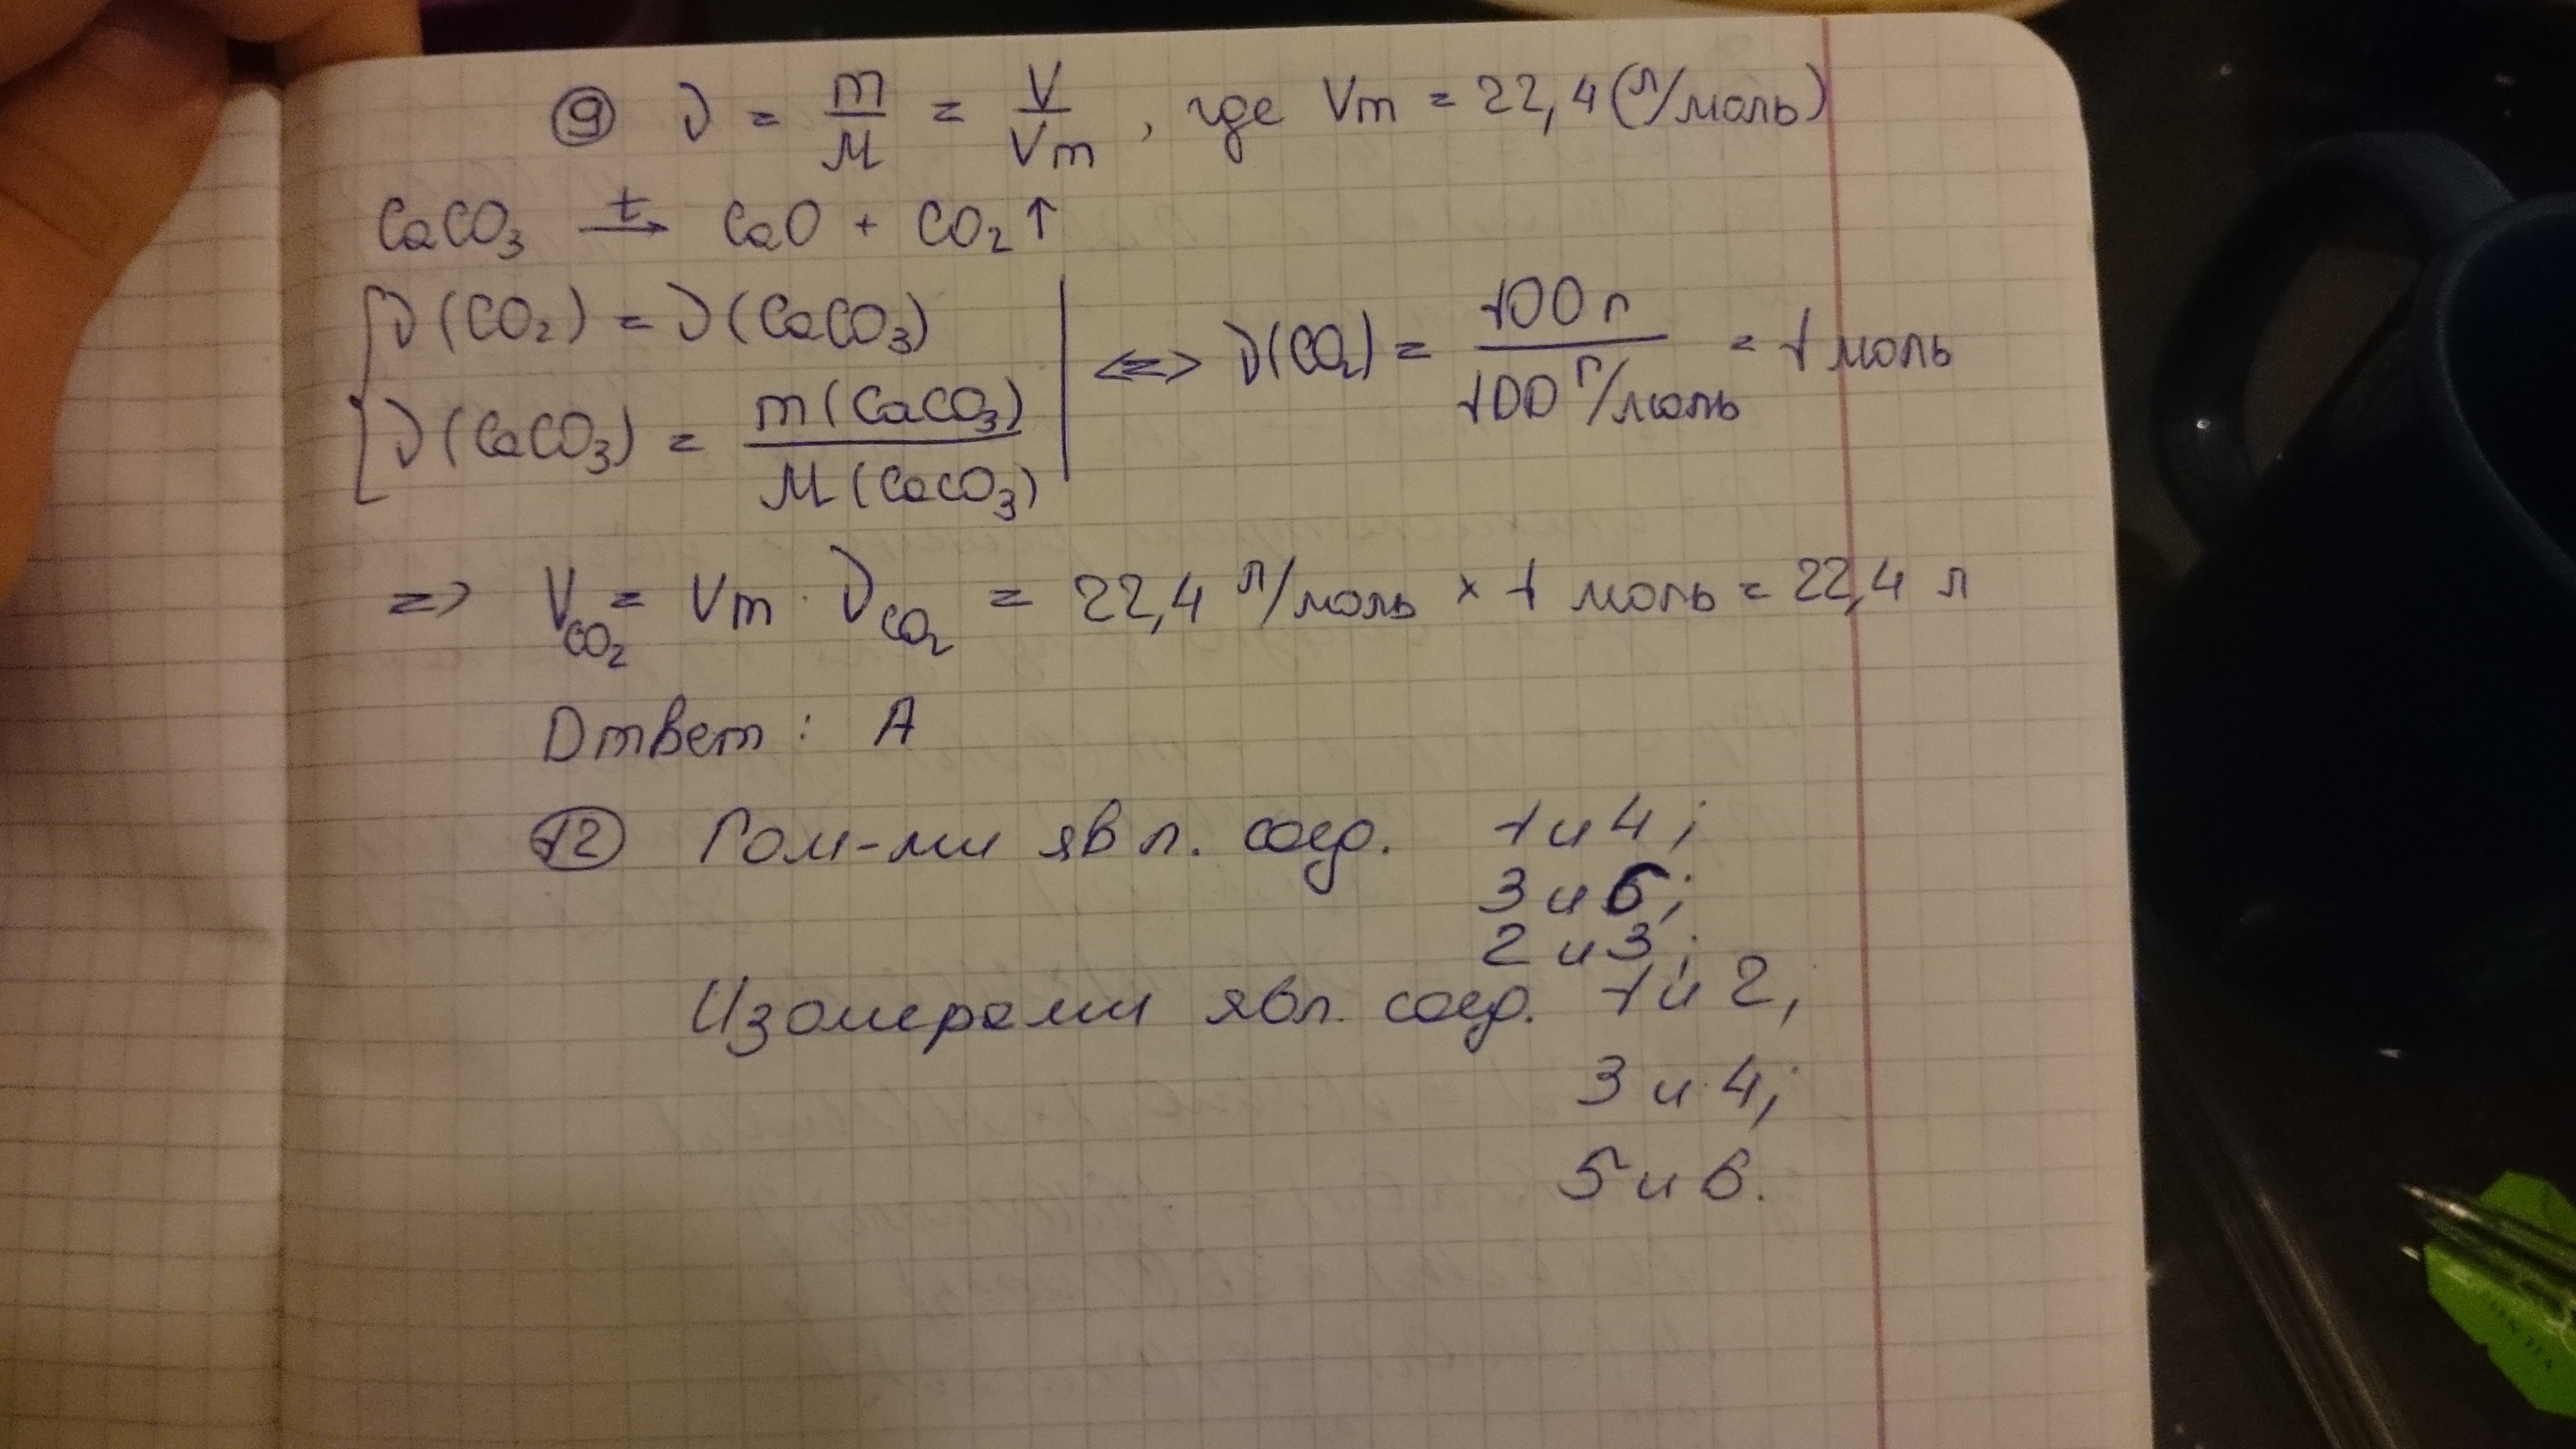 9 ν = m/M = V/Vm, где Vm = 22,4 (л/моль)
CaCO₃ →t CaO + CO₂↑
ν(CO₂) = ν(CaCO₃)
ν(CaCO₃) = m(CaCO₃)/M(CaCO₃)
<=> ν(CO₂) = 100 г/100 г/моль = 1 моль
=> V CO₂ = Vm · ν CO₂ = 22,4 л/моль × 1 моль = 22,4 л
Ответ: А
12 Гом-ми явл. соед. 1 и 4;
3 и 6;
2 и 3;
Изомерами явл. соед. 1 и 2,
3 и 4;
5 и 6.